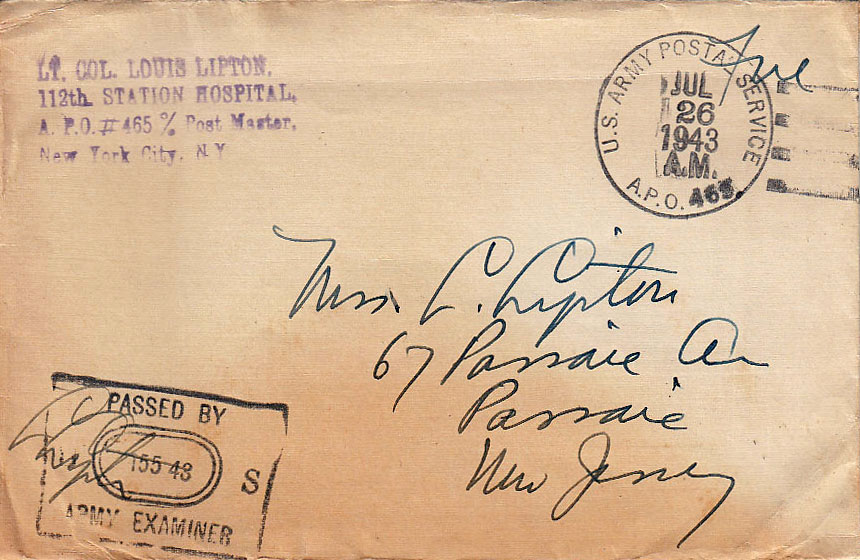 LT. COL. LOUIS LIPTON.
112th STATION HOSPITAL.
A. P.O. #465 % Post Master.
New York City. N Y
U.S. ARMY POSTAL SERVICE
JUL
26
1943
A.M.
A.P.O. 465
Free
Mrs. C. Lipton
67 Passaic Av
Passaic
New Jersey
PASSED BY
U S
15543
ARMY EXAMINER
Lipton